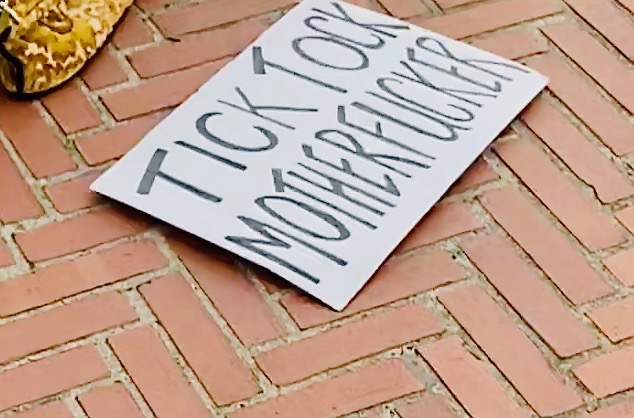 TICK TOCK
MOTHERFUCKER